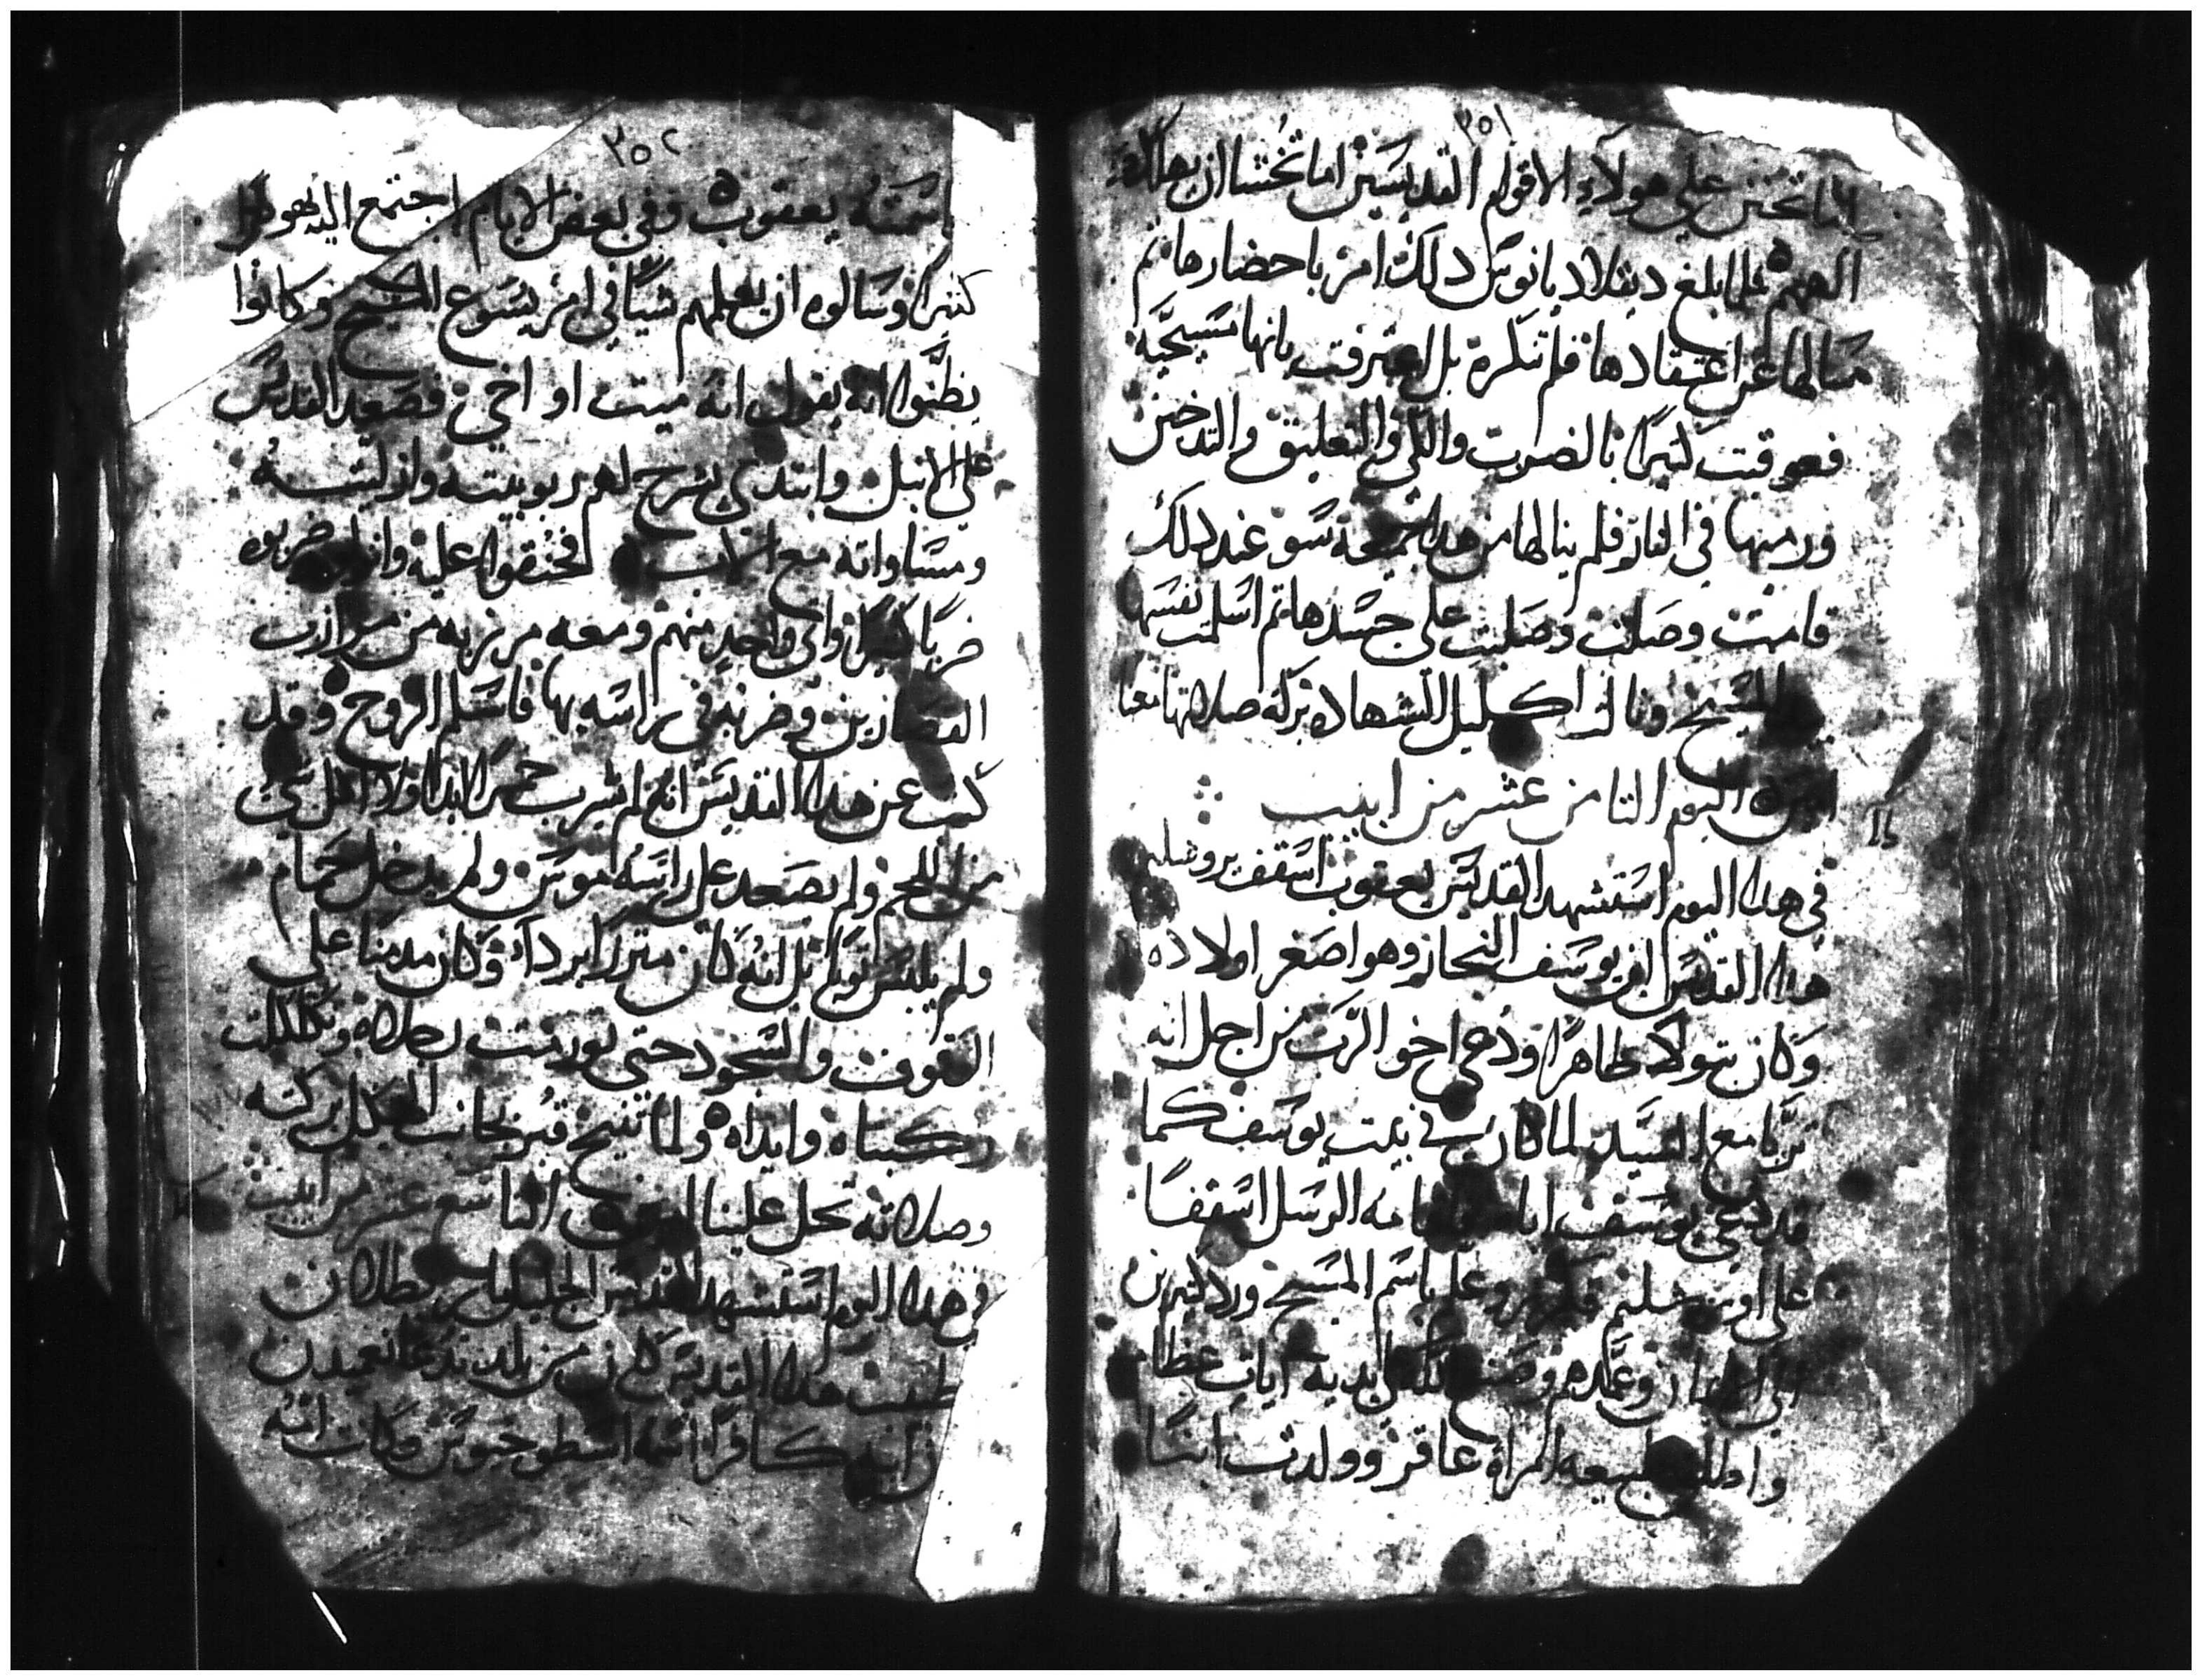 ٣٥١
تحزن علي هولاء الاقوام القديسين اما تخشا ان يهلكك
الههم فلما بلغ دقلاديانوس دلك امر باحضارها تم
سالها عن اعتقادها فلم تنكره بل اعترفت بانها مسيحيه
فعوقبت كتيرًا بالضرب والكي والتعليق والتدخين
ورميها في النار فلم ينالها من هدا جميعه سو عند دلك
قامت وصلت وصلبت علي جسدها تم اسلمت نفسها
المسيح ونالت اكليل الشهاده بركة صلاتها معنا
امين اليوم التامن عشر من ابيب
في هدا اليوم استشهد القديس يعقوب اسقف يروشليم
هدا القديس ابن يوسف النجار وهو اصغر اولاده
وكان بتولا طاهرًا ودعي اخو الرب من اجل انه
تربا مع السيد لما كان في بيت يوسف كما
قد دعي يوسف اباه واقامه الرسل اسقفًا
علي اورشليم فكرز وعلم باسم المسيح ورد كتيرين
الي الايمان وعمدهم وصنع الله علي يديه ايات عظام
واطلق طبيعه امراة عاقر وولدت ابنًا
٣٥٢
اسمته يعقوب وفي بعض الايام اجتمع اليه يهود
كتير وسالوه ان يعلمهم شيًا في امر يسوع المسيح وكانوا
يظنوا انه يقول انه ميت او اخي فصعد القديس
علي الانبل وابتدي يشرح لهم ربوبيته وازليته
ومساواته مع الاب فحنقوا عليه وانزلوه ضربوه
ضربًا كتير واتي واحد منهم ومعه مرزبه من مرازب
القصارين وضربه في راسه بها فاسلم الروح وقد
كتب عن هدا القديس انه لم يشرب خمرًا ابدا ولا اكل شي
من اللحم ولم يصعد علي راسه موس ولم يدخل حمام
ولم يلبس توبًا بل انه كان متزرًا برداء وكان مدمنا علي
الوقوف والسجود حتي تورمت رجلاه وتكلكلت
ركبتاه وايداه ولما تنيح قبر بجانب الهيكل بركته
وصلاته تحل علينا التاسع عشر من ابيب
في هدا اليوم استشهد القديس الجليل بطلان
طبيب هدا القديس كان من بلد تدعا تعميدن
ابيه كافرًا اسمه اسطوخيوس وكانت امه